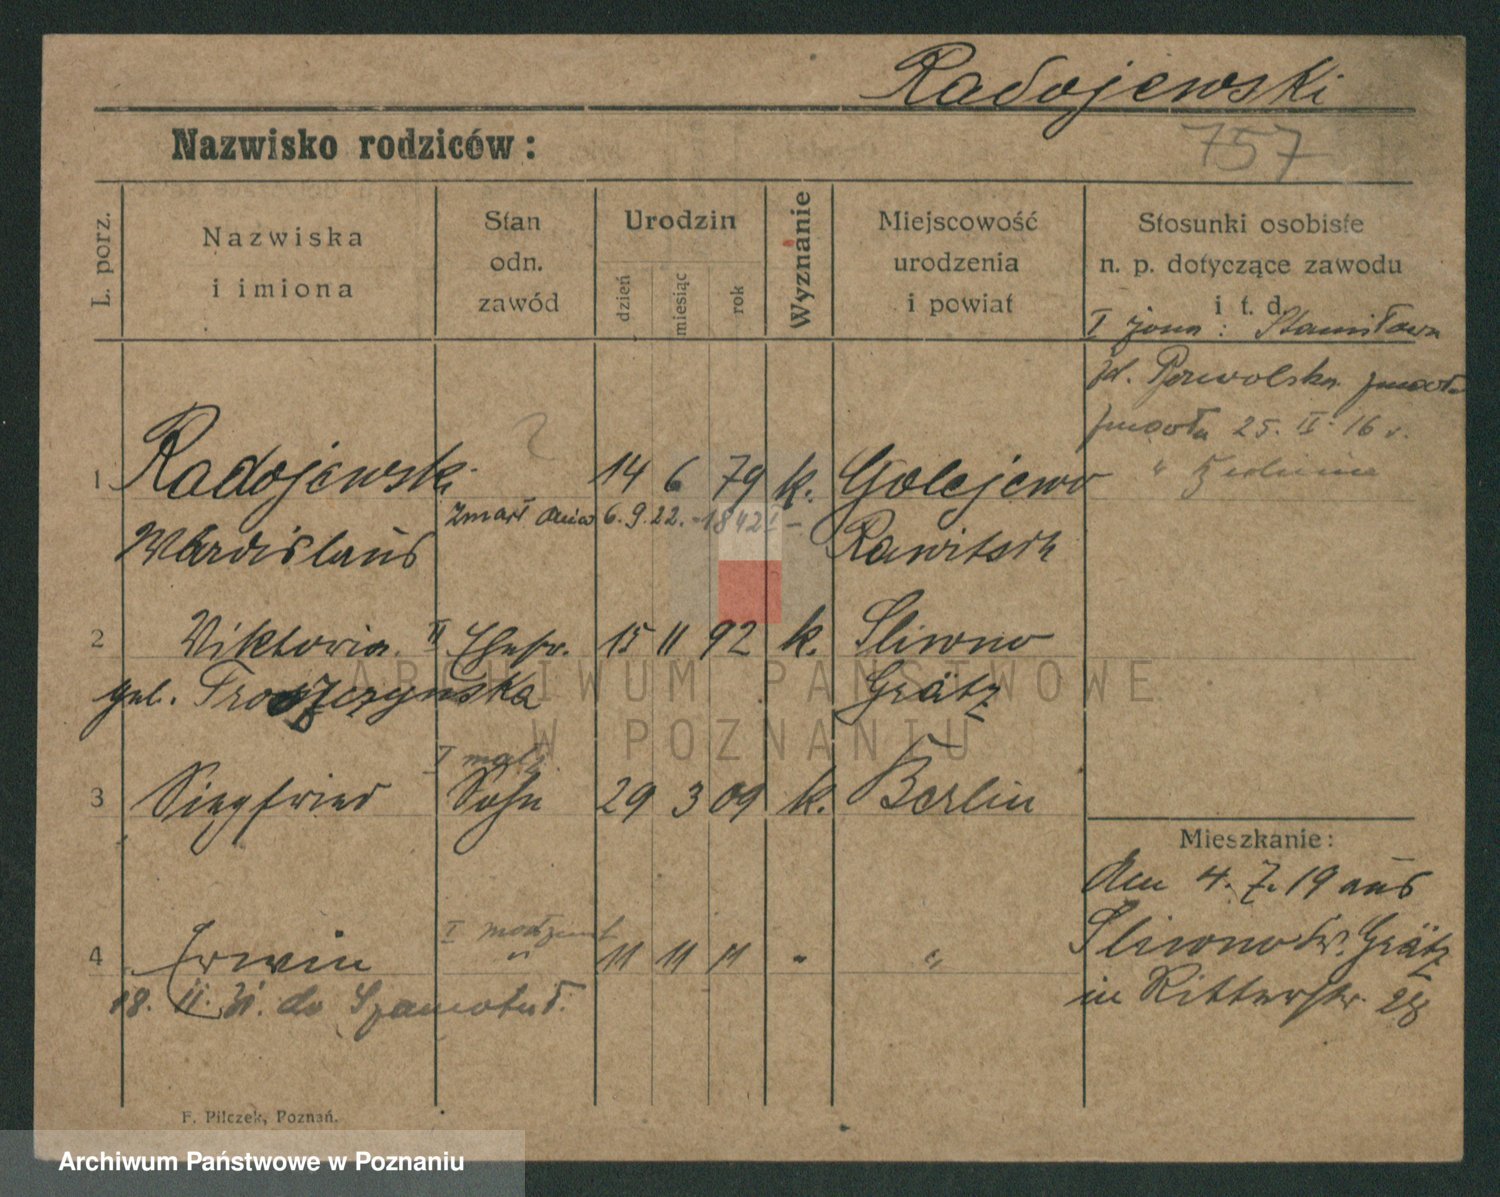 Radojewski
Nazwisko rodziców:
757
L. porz.
Nazwiska
i imiona
Stan
odn.
zawód
Urodzin
dzień
miesiąc
rok
Wyznanie
Miejscowość
urodzenia
i powiat
Stosunki osobiste
n. p. dotyczące zawodu
i t. d.
I żona: Stanisława
zmarła 25. II. 16 r.
1 Radojewski 14 6 79 k. Golejewo
zmarł dnia 6. 9. 22. -1842
Wladislaus Rawitsch
2 Viktoria II Ehefr. 15 11 92 k. Sliwno
geb. Troszczynska Grätz
I małż.
3 Siegfried Sohn 29 3 09 k. Berlin
Mieszkanie:
den 4. 7. 19 aus
Sliwno Kr. Grätz
in Ritterstr. 28
I
4 Erwin " 11 11 11 " "
18. II. 31. do Szamotuł.
F. Pilczek, Poznań.
ARCHIWUM PAŃSTWOWE
W POZNANIU
Archiwum Państwowe w Poznaniu